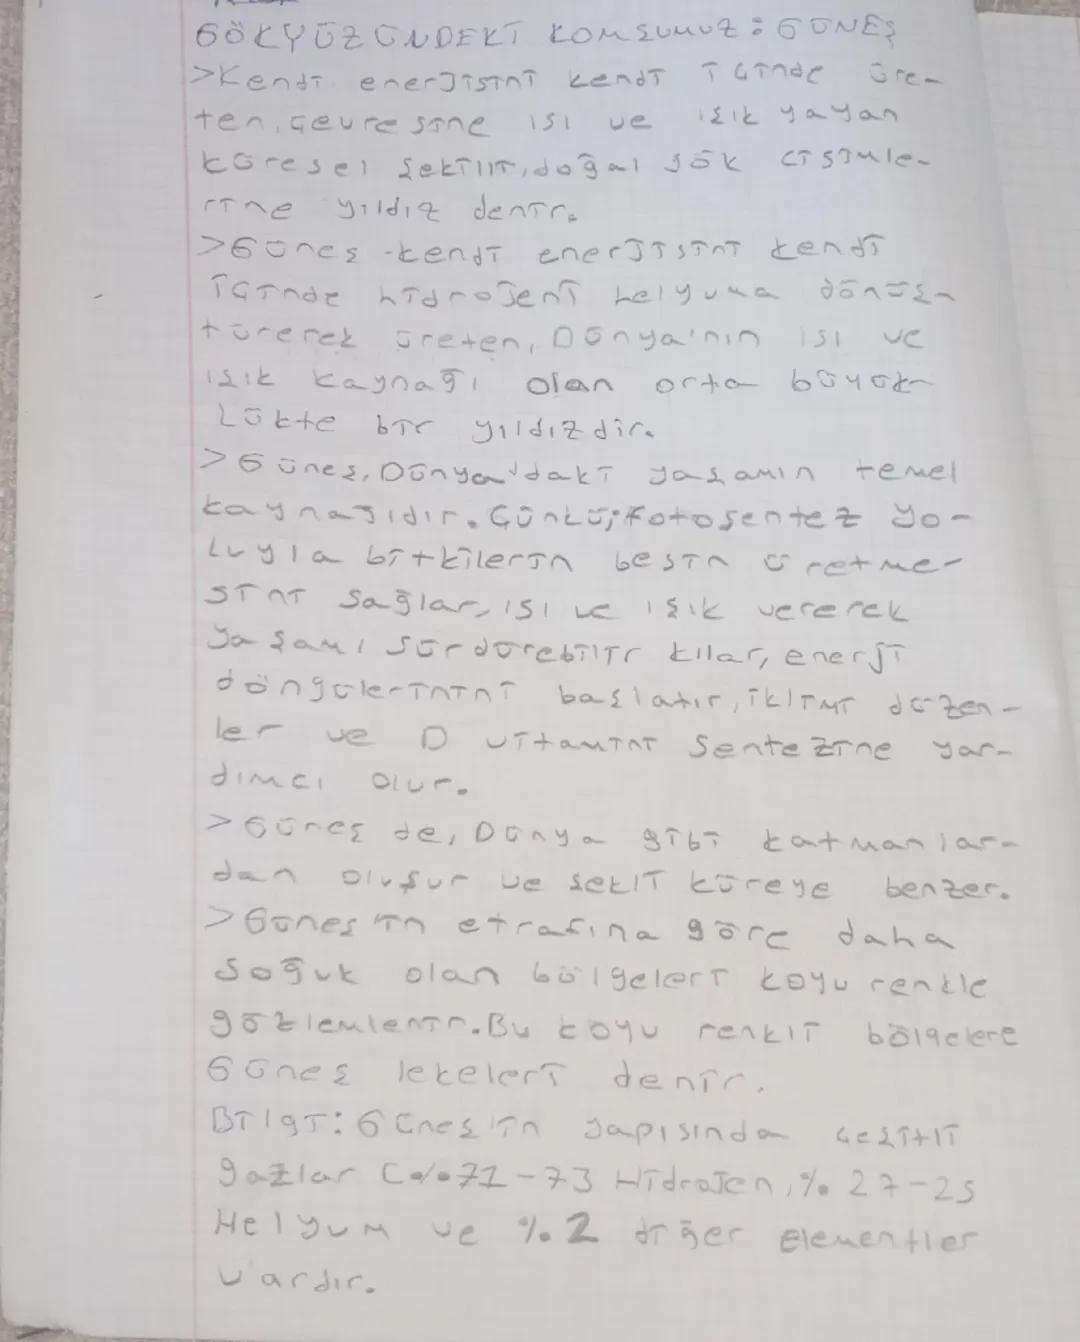 GÖKYÜZÜNDEKİ KOMŞUMUZ: GÜNEŞ
>Kendi enerjisini kendi içinde üre-
ten, çevresine ısı ve ışık yayan
küresel şekilli, doğal gök cisimle-
rine yıldız denir.
>Güneş -kendi enerjisini kendi
içinde hidrojeni helyuma dönüş-
türerek üreten, Dünya'nın ısı ve
ışık kaynağı olan orta büyük-
lükte bir yıldızdır.
>Güneş, Dünya'daki yaşamın temel
kaynağıdır. Çünkü; fotosentez yo-
luyla bitkilerin besin üretme-
sini sağlar, ısı ve ışık vererek
yaşamı sürdürebilir kılar, enerji
döngülerinini başlatır, iklimi düzen-
ler ve D vitamini sentezine yar-
dımcı olur.
>Güneş de, Dünya gibi katmanlar-
dan oluşur ve şekli küreye benzer.
>Güneş'in etrafına göre daha
soğuk olan bölgeleri koyu renkle
gözlemlenir. Bu koyu renkli bölgelere
Güneş lekeleri denir.
Bilgi: Güneş'in yapısında çeşitli
gazlar (%71-73 Hidrojen, %27-25
Helyum ve %2 diğer elementler
vardır.